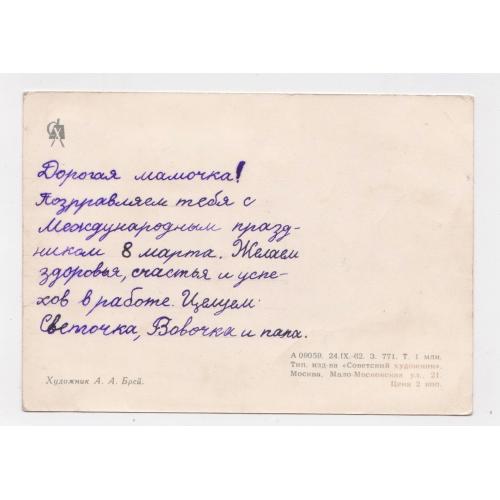 Дорогая мамочка!
Поздравляем тебя с
Международным празд-
ником 8 марта. Желаем
здоровья, счастья и успе-
хов в работе. Целуем
Светочка, Вовочка и папа.
А 09059. 24.IX.-62. З. 771. Т. 1 млн.
Тип. изд-ва «Советский художник»,
Москва, Мало-Московская ул., 21.
Цена 2 коп.
Художник А. А. Брей.